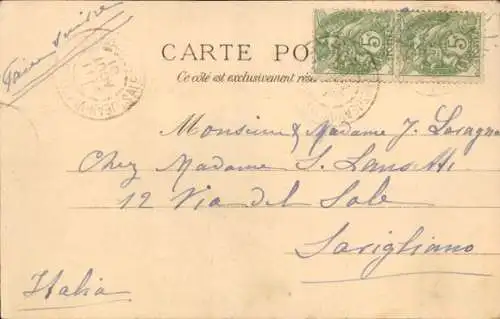 Faire suivre
CARTE PO
Ce côté est exclusivement rése
5 5
Monsieur & Madame J.
Chez Madame S. Lansetti
12 Via del Sole
Savigliano
Italia